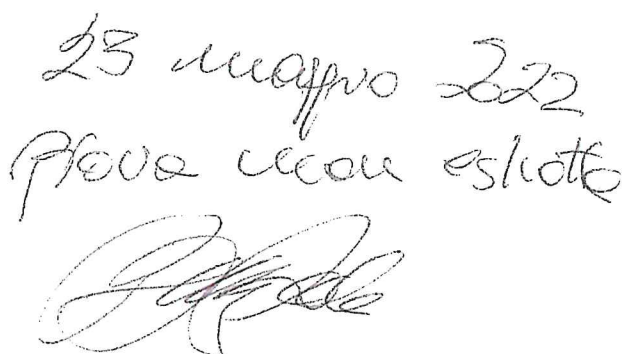 23 maggio 2022
Prova non estratta